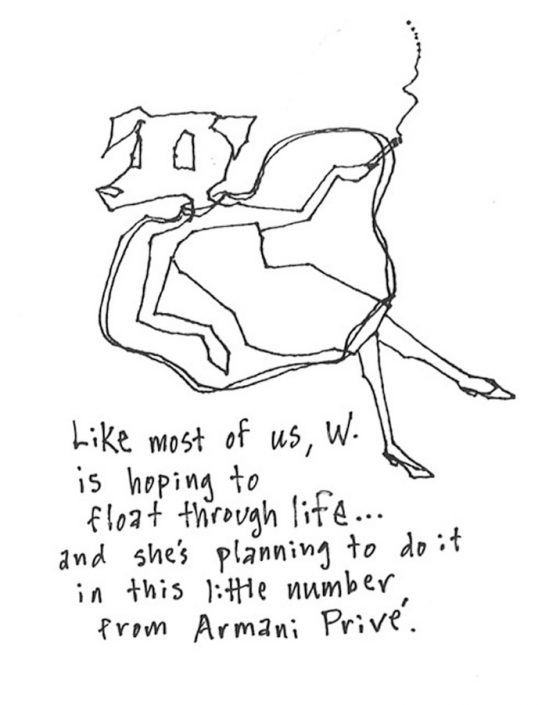 Like most of us, W.
is hoping to
float through life...
and she's planning to do it
in this little number
from Armani Privé.